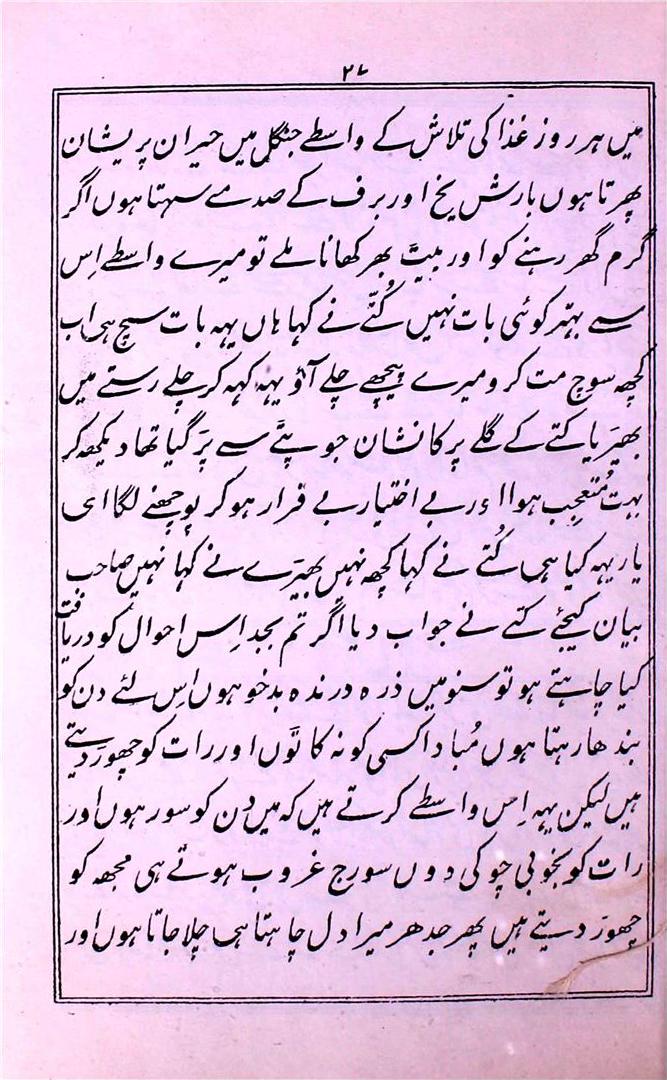 ۲۷
میں ہر روز غذا کی تلاش کے واسطے جنگل میں حیران پریشان
پھرتا ہوں بارش یخ اور برف کے صدمے سہتا ہوں اگر
گرم گھر رہنے کو اور پیٹ بھر کھانا ملے تو میرے واسطے اِس
سے بہتر کوئی بات نہیں کُتّے نے کہا ہاں یہہ بات سچ ہی اب
کچھ سوچ مت کرو میرے پیچھے چلے آؤ یہہ کہہ کر چلے رستے میں
بھیڑیا کتے کے گلے پر کا نشان جو پٹے سے پڑ گیا تھا دیکھہ کر
بہت مُتعجِب ہوا اور بے اختیار بے قرار ہو کر پوچھنے لگا ای
یار یہہ کیا ہی کُتے نے کہا کچھ نہیں بھیڑے نے کہا نہیں صاحب
بیان کیجئے کتے نے جواب دیا اگر تم بجد اِس احوال کو دریافت
کیا چاہتے ہو تو سنو میں ذرہ درندہ بدخو ہوں اِس لئے دن کو
بندھا رہتا ہوں مُبادا کسی کو نہ کاٹوں اور رات کو چھوڑ دیتے
ہیں لیکن یہہ اِس واسطے کرتے ہیں کہ میں دن کو سو رہوں اور
رات کو بخوبی چوکی دوں سورج غروب ہوتے ہی مجھہ کو
چھوڑ دیتے ہیں پھر جدھر میرا دل چاہتا ہی چلا جاتا ہوں اور